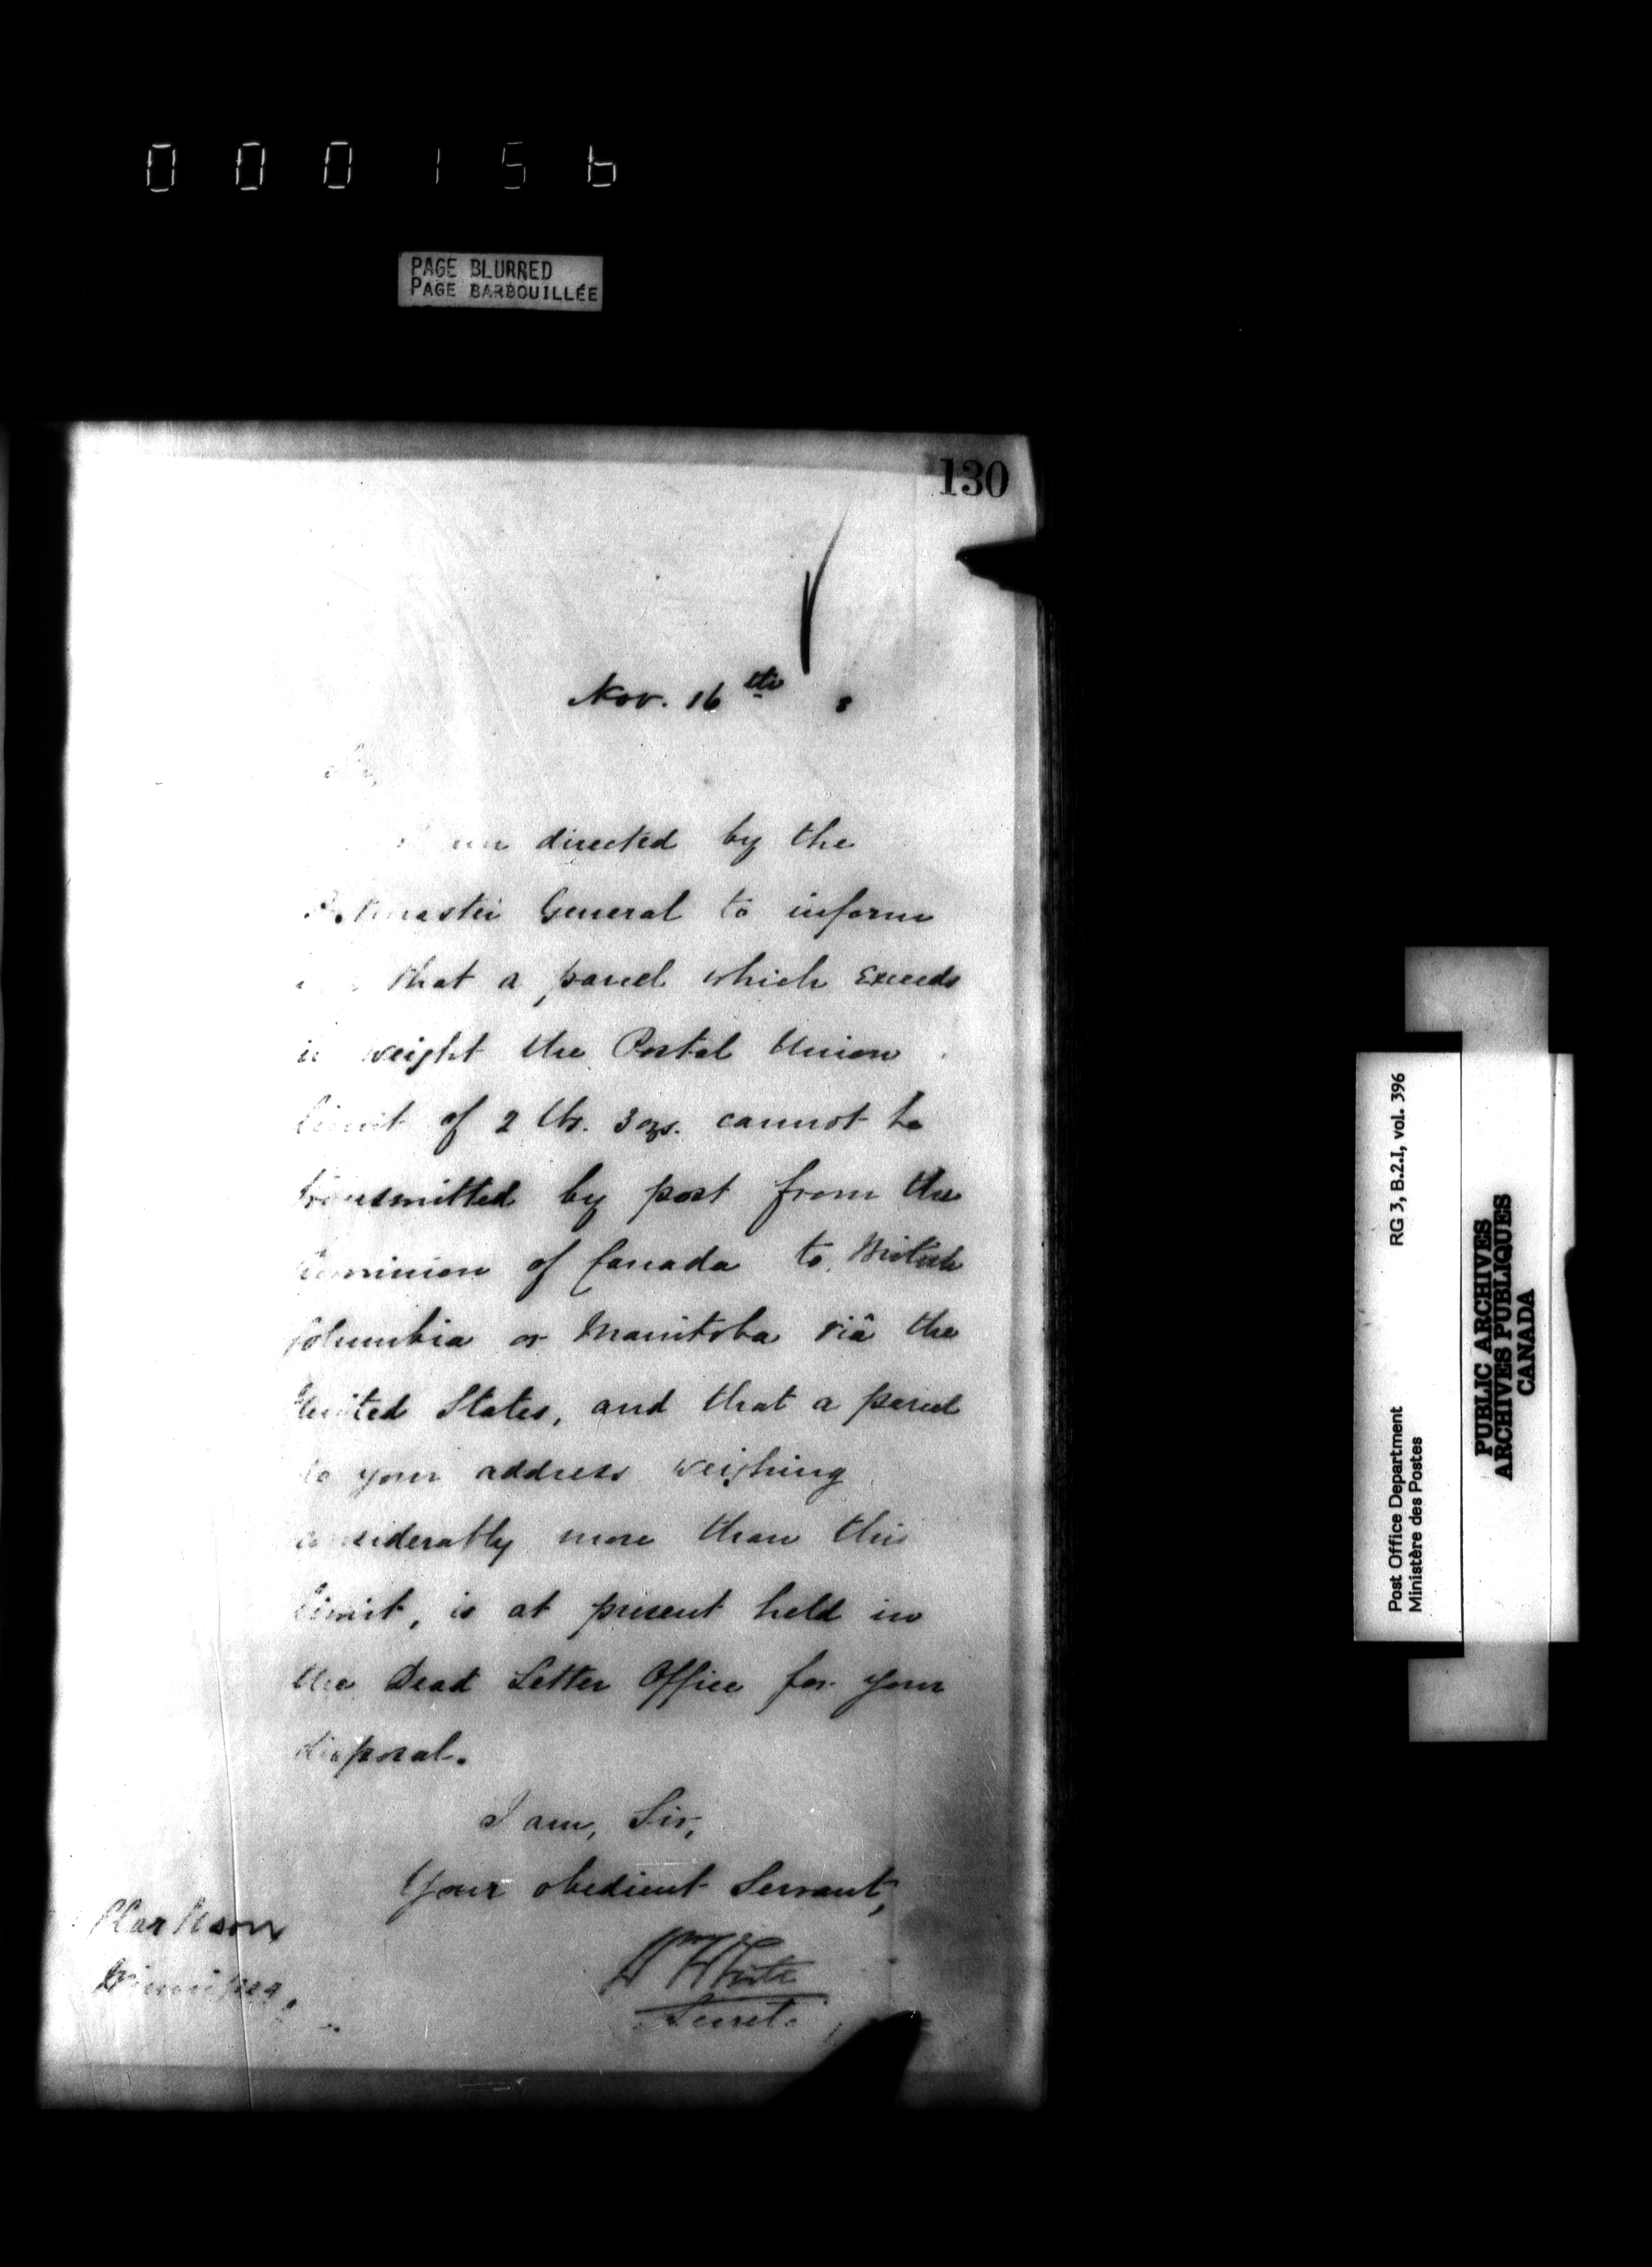 000156
PAGE BLURRED
PAGE BARBOUILLÉE
130
Nov. 16th 8
directed by the
Postmaster General to inform
that a parcel which exceeds
in weight the Postal Union
limit of 2 lbs. 3 ozs. cannot be
transmitted by post from the
Dominion of Canada to British
Columbia or Manitoba viâ the
United States, and that a parcel
to your address weighing
considerably more than this
limit, is at present held in
the Dead Letter Office for your
disposal.
I am, Sir,
Your obedient Servant,
Wm White
Secret.
Clarkson
Winnipeg.
Post Office Department
Ministère des Postes
RG 3, B.2.I, vol. 396
PUBLIC ARCHIVES
ARCHIVES PUBLIQUES
CANADA